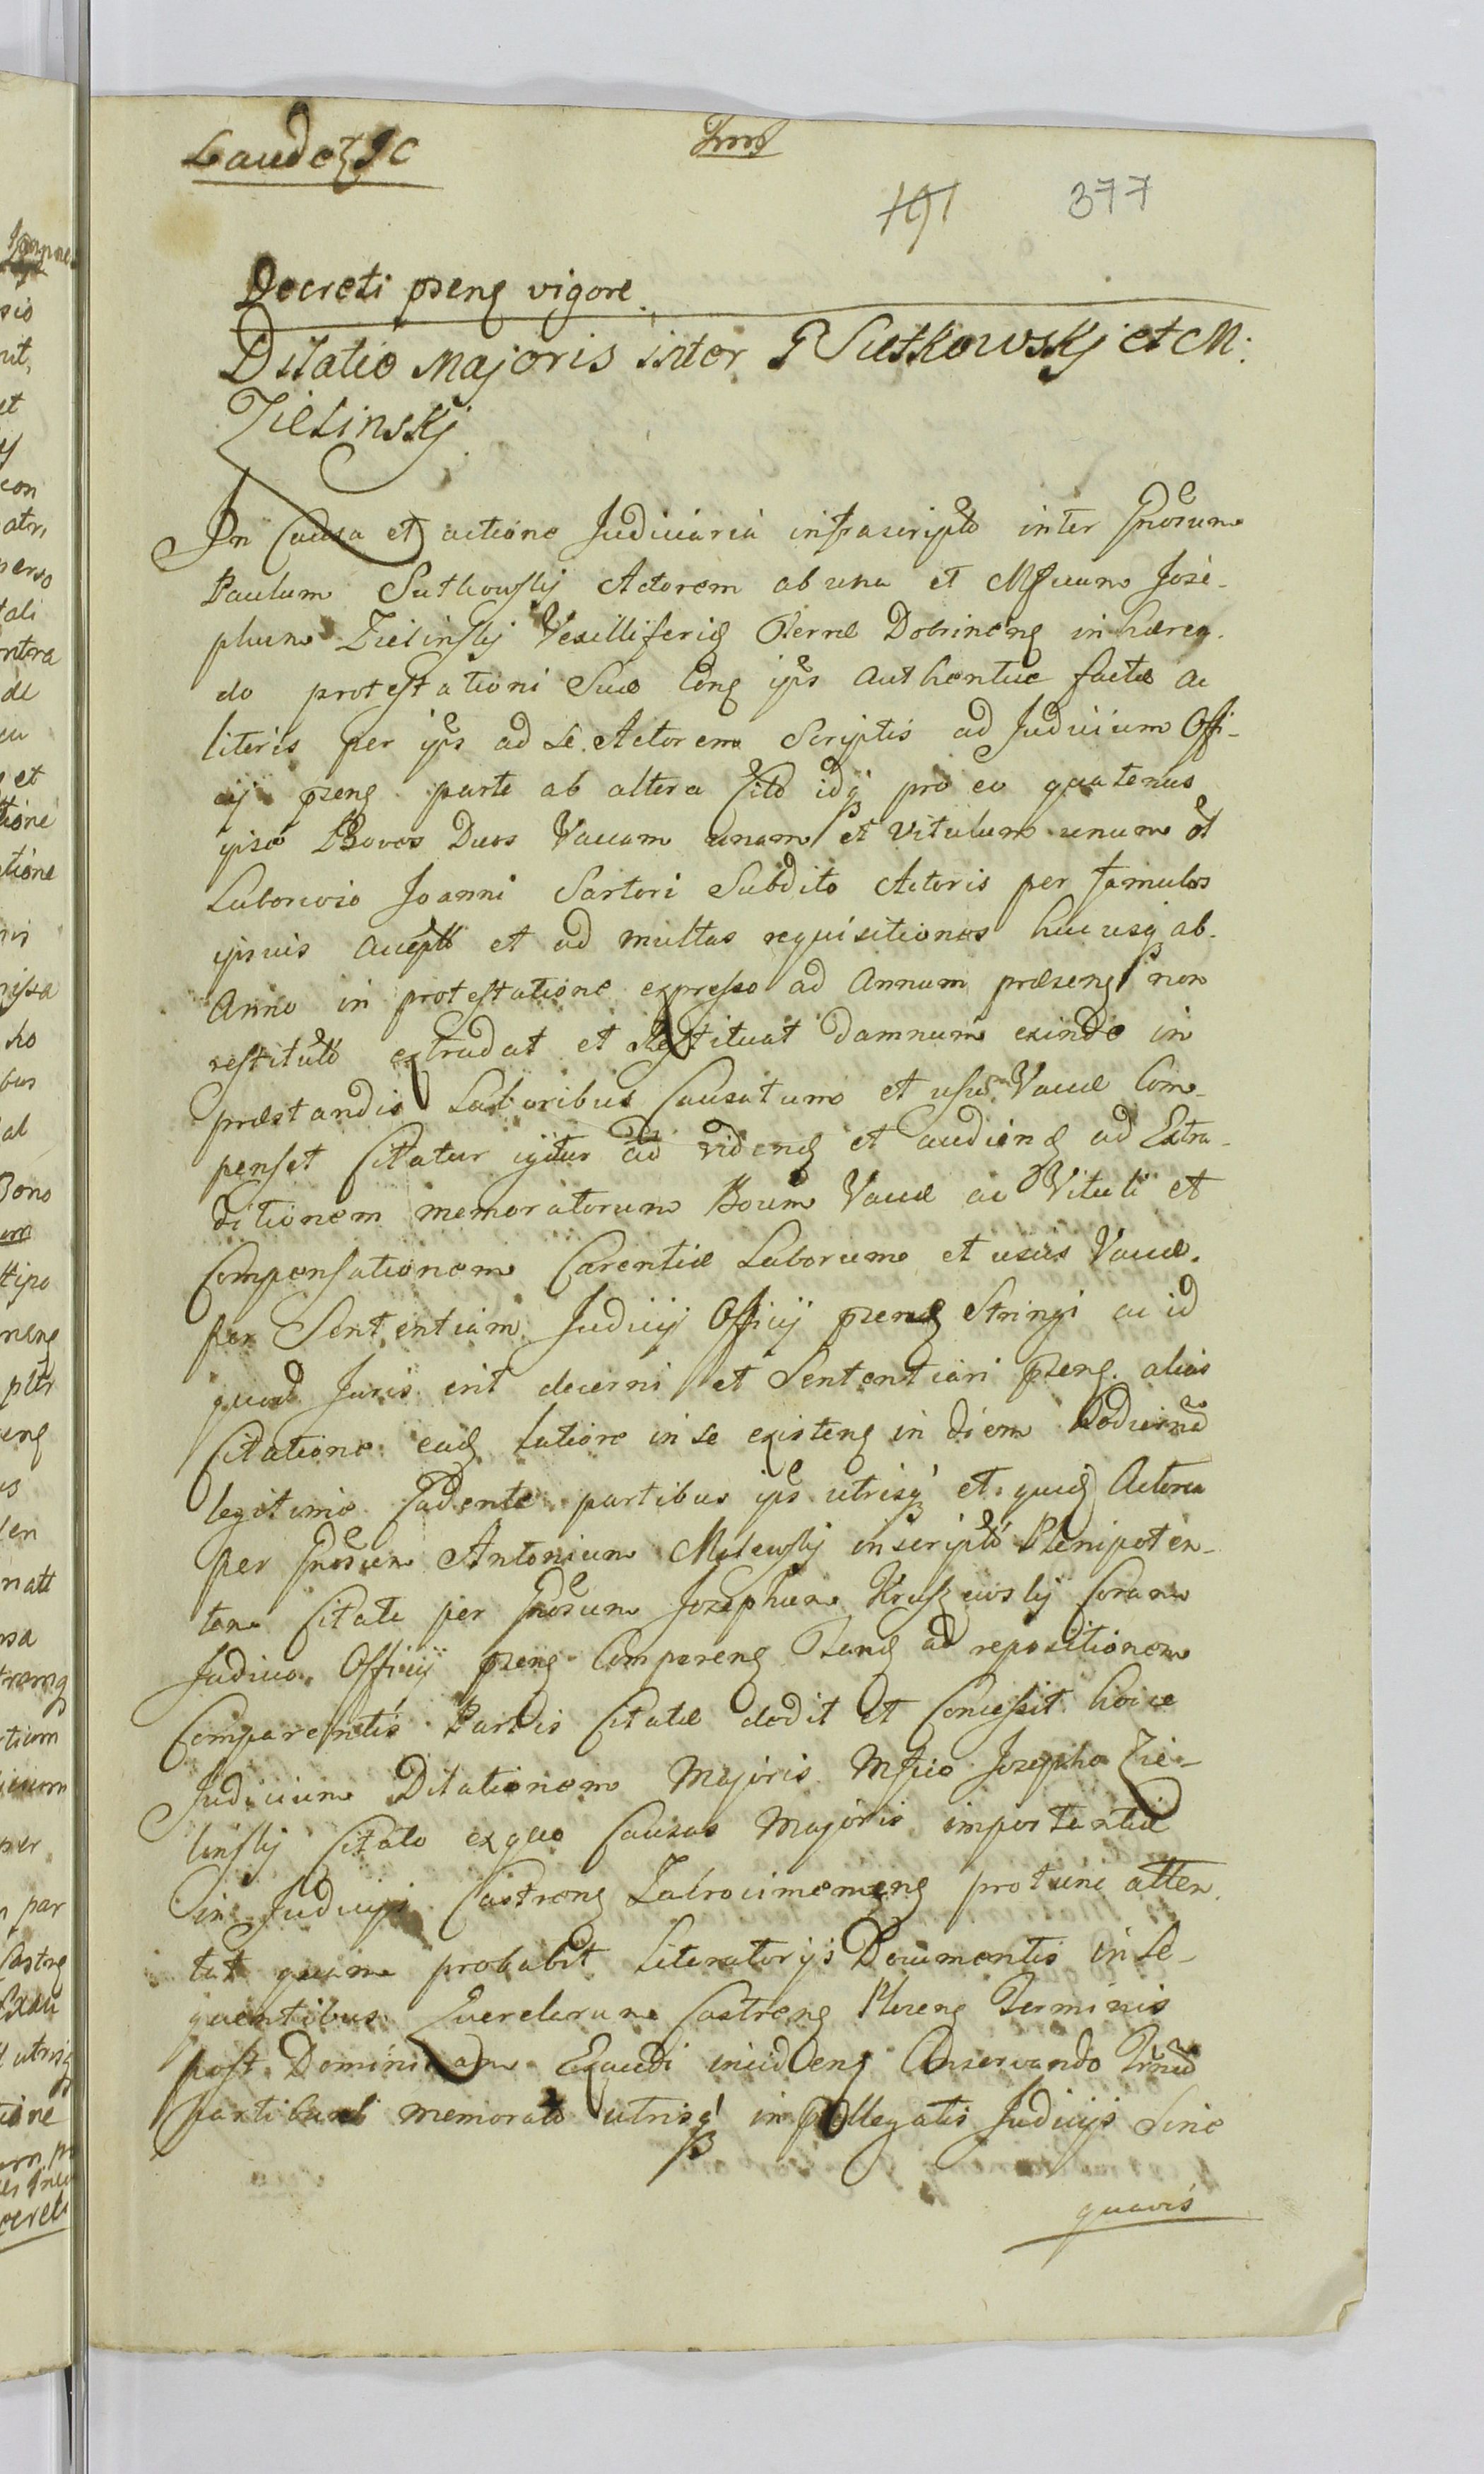 Laudetz JC
191 377
Decreti pseng vigore
Dilatio Majoris inter G Sutkowskj et M:
Zielinskj
In Causa et actione Judiciaria infrascripta inter Gnosum
Paulum Sutkowskj Actorem ab una et Mficum Jose-
phum Zielinskj Vexilliferid Terræ Dobrineng inhæreg.
do protestationi Suæ Cong ips authentice factæ ac
literis per ips ad Se Actorem Scriptis ad Judicium Offi-
cij pseng parte ab altera Cito idq pro eo quatenus
ipse Boves Duos Vaccam unam et Vitulum unum
Laborioso Joanni Sartori Subdito Actoris per famulos
ipsius accepto et ad multas requisitiones hucusq ab.
Anno in protestatione expresso ad Annum præseng non
restituto extradat et Restituat damnum exinde in
præstandis Laboribus Causatum et usum Vaccæ Com-
penset Citatur igitur ad videnđ et audienđ ad Extra-
ditionem memoratorum Boum Vaccæ ac Vituli et
Compensationem Carentiæ Laborum et usus Vaccæ.
per Sententiam Judicij Officij pseng Stringi ac id
quod Juris erit decerni et Sententiari pseng. alias
Citatione eađ latiore in se existeng in diem hodierna
legitime Cadente partibus ips utrisq et quiđ Actorea
per Gnosum Antonium Malewskj inscripto Plenipoten-
tem Citata per Gnosum Josephum Kruszewskj Coram
Judicio Officij pseng Compareng Tanđ ad repositionem
Comparentis Partis Citatæ dedit et Concessit hocce
Judicium Dilationem Majoris Mfico Josepho Zie-
linskj Citato ex quo Causas Majoris importantiæ
in Judicijs Castreng protunc atten-
tat quam probabit Literatorijs Documentis in Se-
quentibus Querelarum Castreng Terminis
post Dominicam Exaudi incideng Conservando Trmd
partibus memorato utrisq in pollegatis Judicijs Sine
quavis